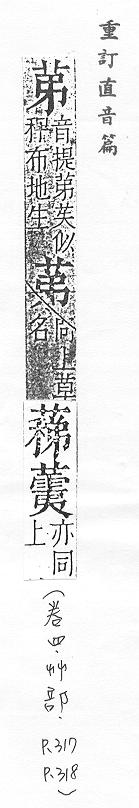 重訂直音篇
苐 音提苐苵似
稗布地生
同上草
名
蕛
亦同
上
(卷四.艸部.
P.317
P.318)